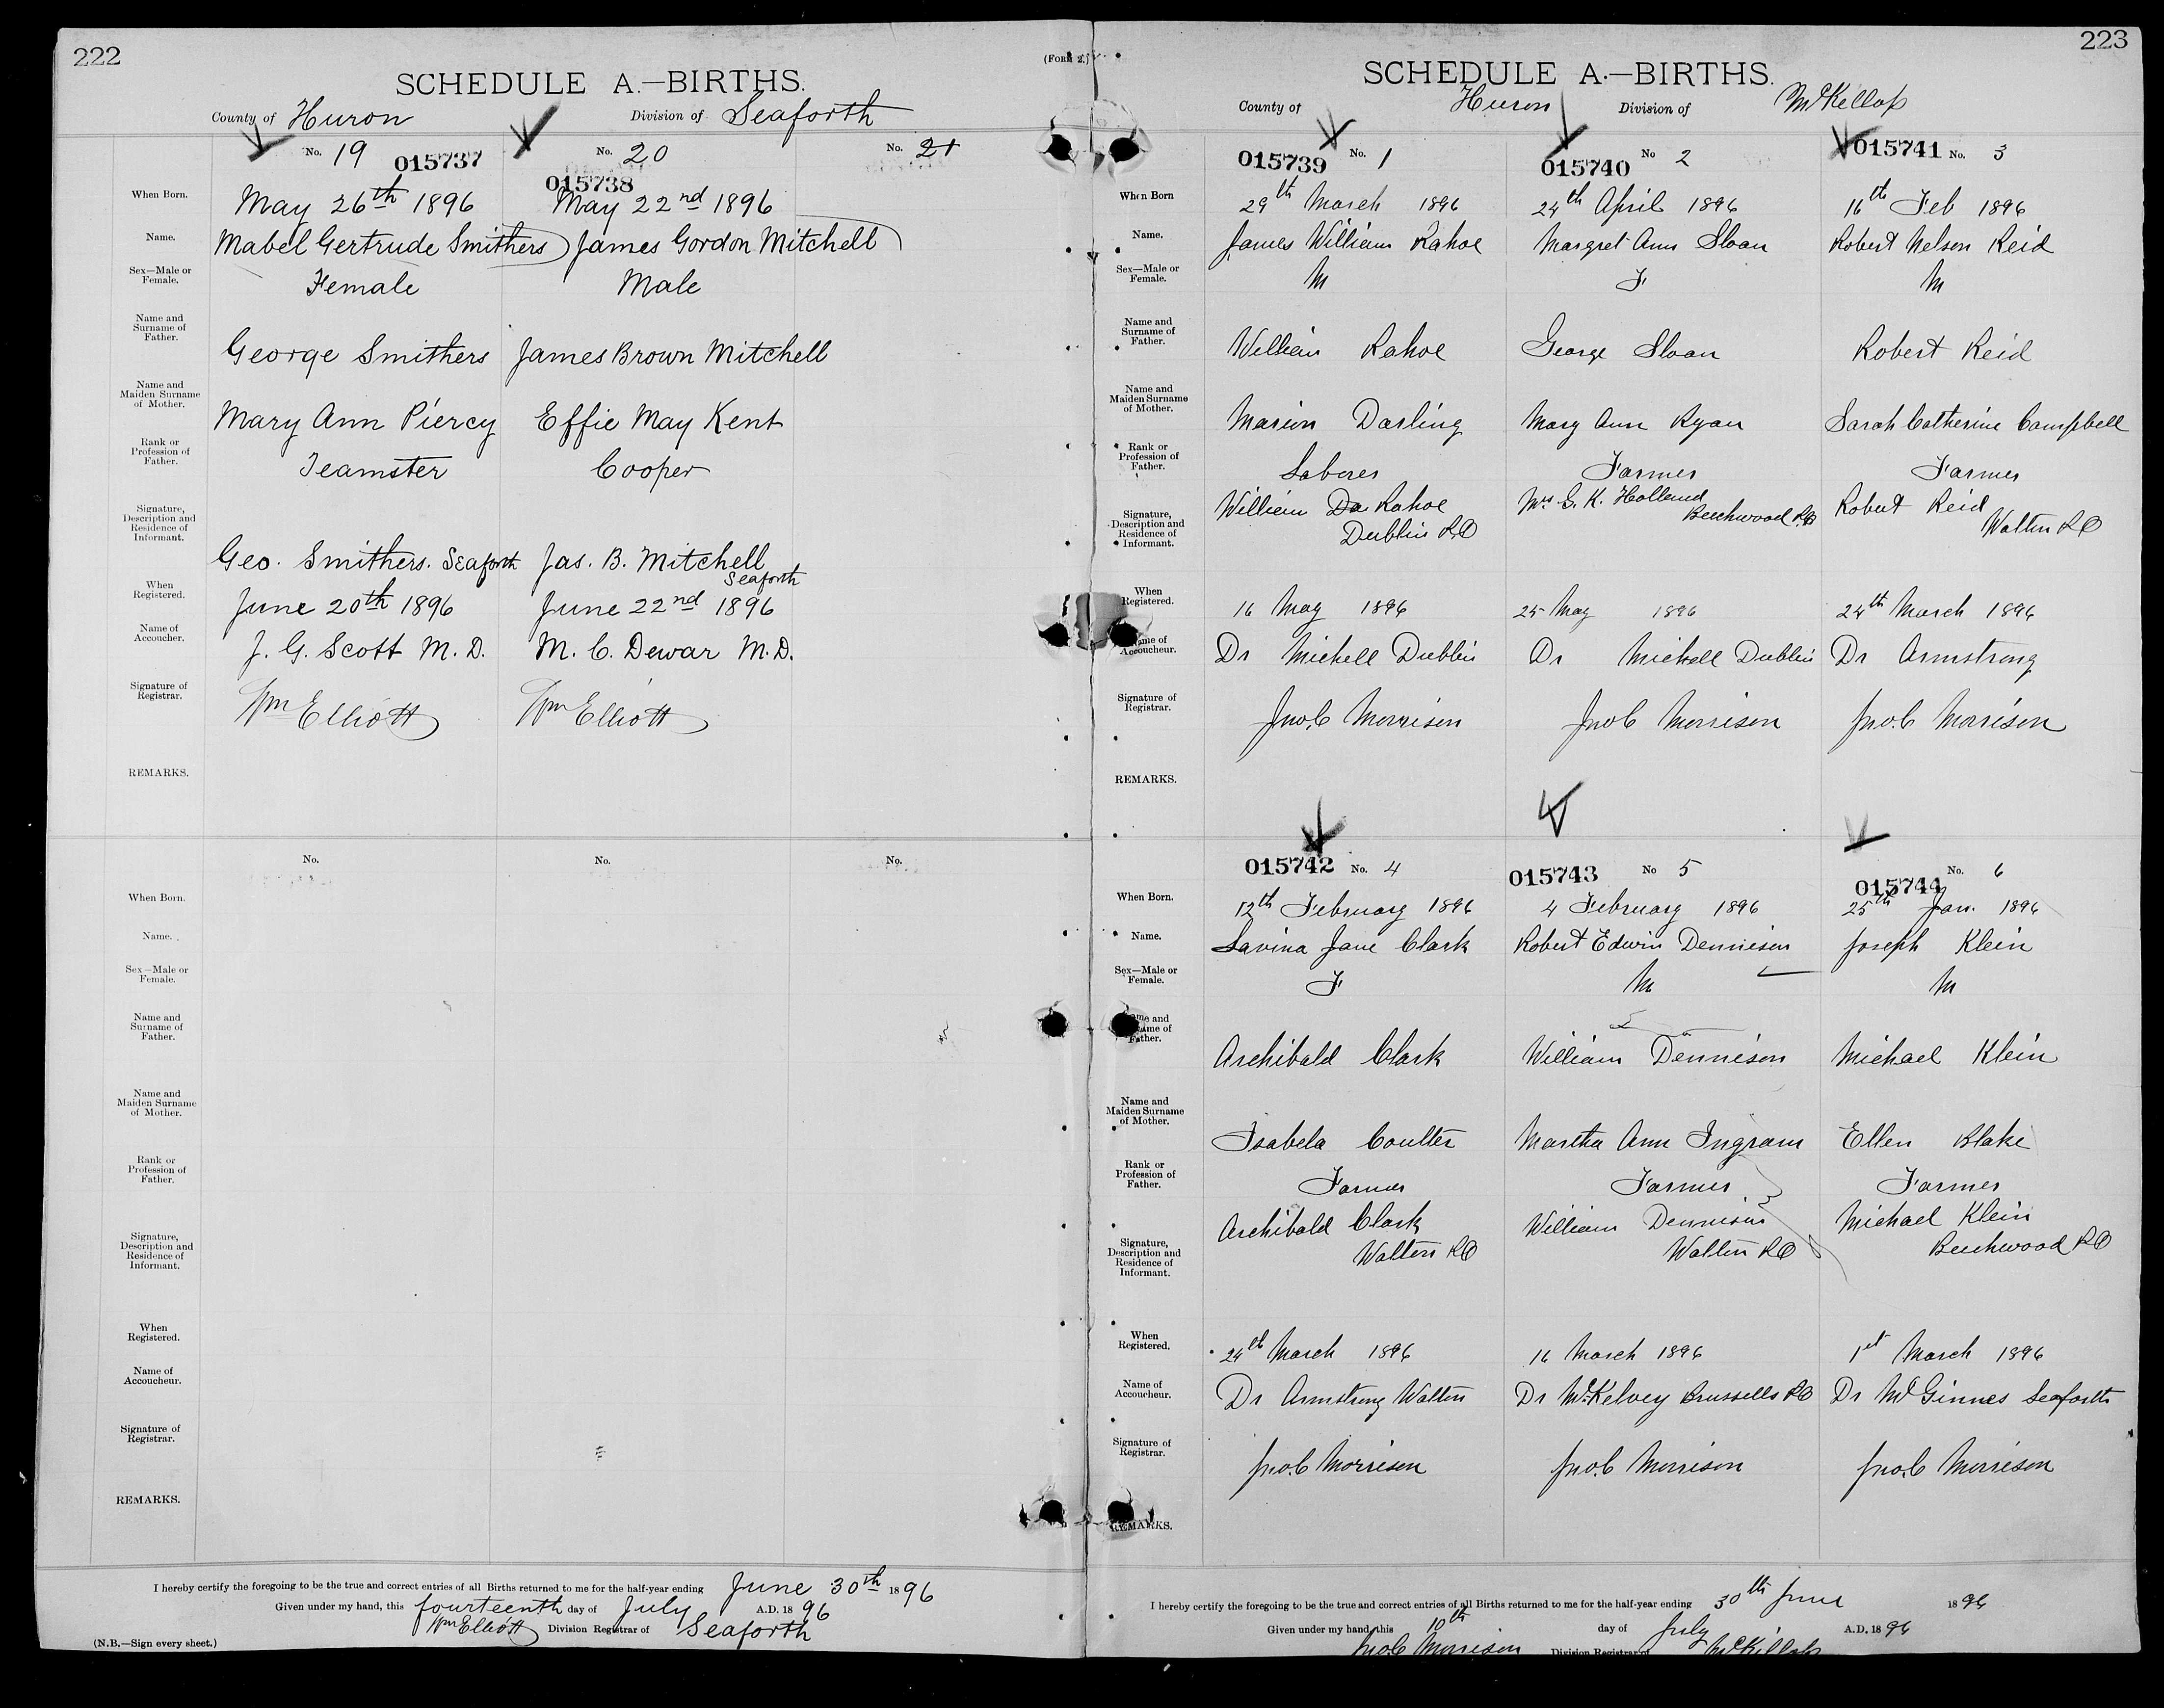 222
(FORM 2.)
SCHEDULE A.—BIRTHS.
County of Huron Division of Seaforth
No. 19 015737 No. 20 015738 No. 21
When Born. May 26th 1896 May 22nd 1896
Name. Mabel Gertrude Smithers James Gordon Mitchell
Sex—Male or Female. Female Male
Name and Surname of Father. George Smithers James Brown Mitchell
Name and Maiden Surname of Mother. Mary Ann Piercy Effie May Kent
Rank or Profession of Father. Teamster Cooper
Signature, Description and Residence of Informant. Geo. Smithers. Seaforth Jas. B. Mitchell Seaforth
When Registered. June 20th 1896 June 22nd 1896
Name of Accoucher. J. G. Scott M. D. M. C. Dewar M. D.
Signature of Registrar. Wm Elliott Wm Elliott
REMARKS.
No. No. No.
When Born.
Name.
Sex—Male or Female.
Name and Surname of Father.
Name and Maiden Surname of Mother.
Rank or Profession of Father.
Signature, Description and Residence of Informant.
When Registered.
Name of Accoucheur.
Signature of Registrar.
REMARKS.
I hereby certify the foregoing to be the true and correct entries of all Births returned to me for the half-year ending June 30th 1896
Given under my hand, this fourteenth day of July A.D. 1896
Wm Elliott Division Registrar of Seaforth
(N.B.—Sign every sheet.)
223
SCHEDULE A.—BIRTHS.
County of Huron Division of McKellop
015739 No. 1 015740 No 2 015741 No. 3
When Born 29th March 1896 24th April 1896 16th Feb 1896
Name. James William Kahoe Margret Ann Sloan Robert Nelson Reid
Sex—Male or Female. M F M
Name and Surname of Father. William Kahoe George Sloan Robert Reid
Name and Maiden Surname of Mother. Marion Darling Mary Ann Ryan Sarah Catherine Campbell
Rank or Profession of Father. Laborer Farmer Farmer
Signature, Description and Residence of Informant. William Da Kahoe Dublin PO Mrs G. K. Holland Beechwood PO Robert Reid Walton PO
When Registered. 16 May 1896 25 May 1896 24th March 1896
Name of Accoucheur. Dr Michell Dublin Dr Michell Dublin Dr Armstrong
Signature of Registrar. Jno. C Morrison Jno C Morrison Jno. C Morrison
REMARKS.
015742 No. 4 015743 No 5 015744 No. 6
When Born. 12th February 1896 4 February 1896 25th Jan. 1896
Name. Lavina Jane Clark Robert Edwin Dennison Joseph Klein
Sex—Male or Female. F M M
Name and Surname of Father. Archibald Clark William Dennison Michael Klein
Name and Maiden Surname of Mother. Isabela Coulter Martha Ann Ingram Ellen Blake
Rank or Profession of Father. Farmer Farmer Farmer
Signature, Description and Residence of Informant. Archibald Clark Walton PO William Dennison Walton PO Michael Klein Beechwood PO
When Registered. 24th March 1896 16 March 1896 1st March 1896
Name of Accoucheur. Dr Armstrong Walton Dr McKelvey Brussells PO Dr McGinnes Seaforth
Signature of Registrar. Jno. C Morrison Jno. C Morrison Jno. C Morrison
REMARKS.
I hereby certify the foregoing to be the true and correct entries of all Births returned to me for the half-year ending 30th June 1896
Given under my hand, this 10th day of July A.D. 1896
Jno. C Morrison Division Registrar of McKillop